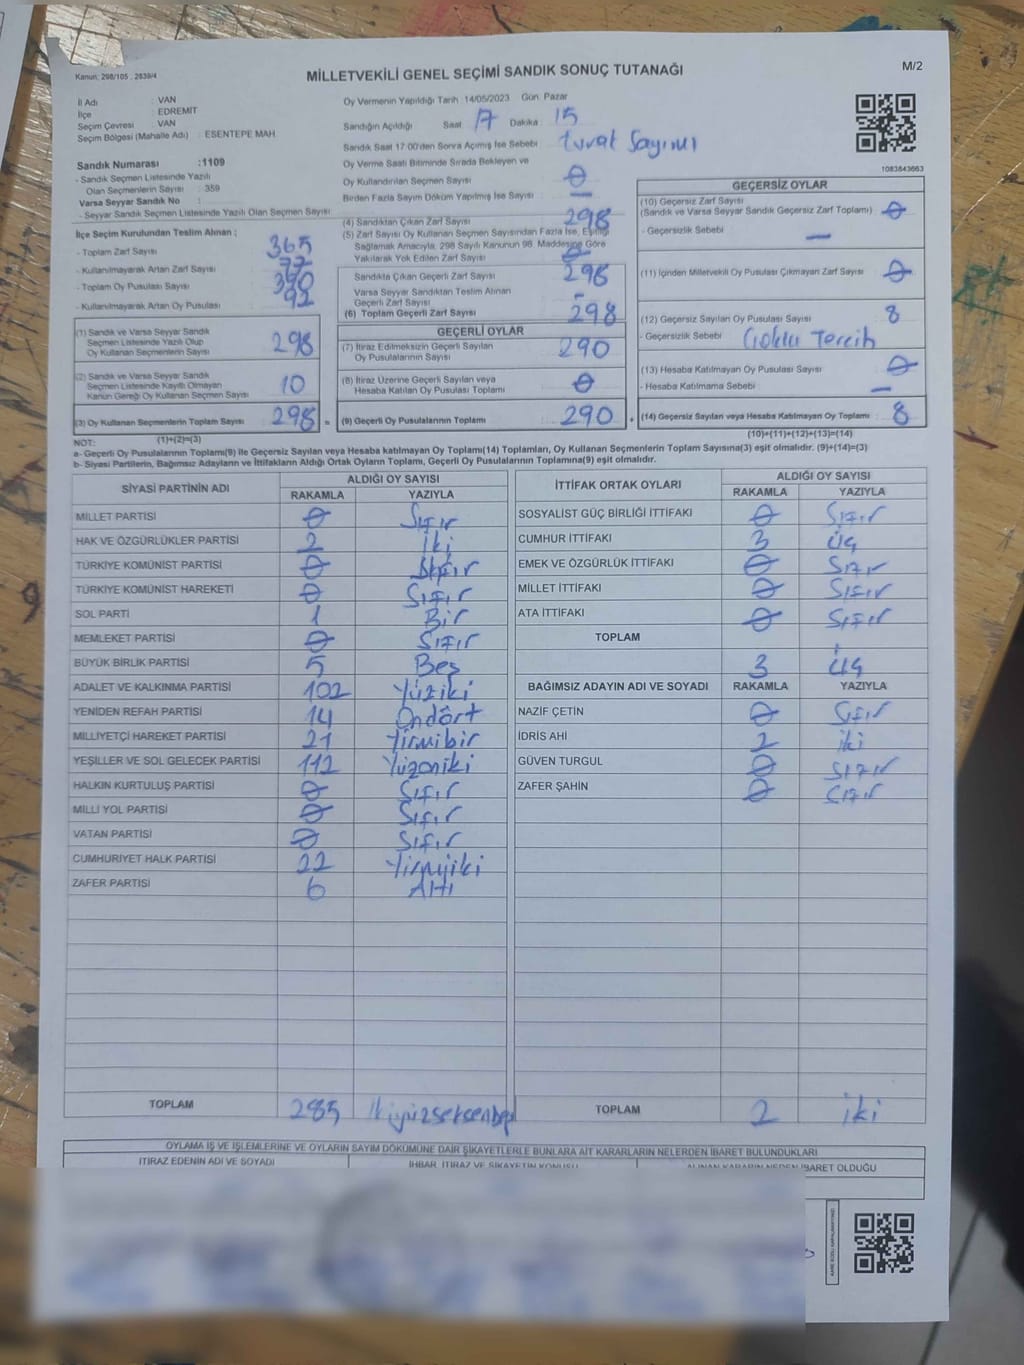 Kanun: 298/105 . 2839/4
MİLLETVEKİLİ GENEL SEÇİMİ SANDIK SONUÇ TUTANAĞI
M/2
İl Adı : VAN
İlçe : EDREMIT
Seçim Çevresi : VAN
Seçim Bölgesi (Mahalle Adı) : ESENTEPE MAH.
Sandık Numarası :1109
- Sandık Seçmen Listesinde Yazılı
Olan Seçmenlerin Sayısı : 359
Varsa Seyyar Sandık No :
- Seyyar Sandık Seçmen Listesinde Yazılı Olan Seçmen Sayısı :
Oy Vermenin Yapıldığı Tarih : 14/05/2023 Gün: Pazar
Sandığın Açıldığı Saat 17 Dakika : 15
Sandık Saat 17:00'den Sonra Açılmış İse Sebebi : Evrat Sayımı
Oy Verme Saati Bitiminde Sırada Bekleyen ve
Oy Kullandırılan Seçmen Sayısı : 0
Birden Fazla Sayım Döküm Yapılmış İse Sayısı : —
1083843663
İlçe Seçim Kurulundan Teslim Alınan ;
- Toplam Zarf Sayısı : 365
- Kullanılmayarak Artan Zarf Sayısı :
- Toplam Oy Pusulası Sayısı :
- Kullanılmayarak Artan Oy Pusulası : 92
(1) Sandık ve Varsa Seyyar Sandık
Seçmen Listesinde Yazılı Olup
Oy Kullanan Seçmenlerin Sayısı 298
(2) Sandık ve Varsa Seyyar Sandık
Seçmen Listesinde Kayıtlı Olmayan
Kanun Gereği Oy Kullanan Seçmen Sayısı 10
(3) Oy Kullanan Seçmenlerin Toplam Sayısı 298 =
(4) Sandıktan Çıkan Zarf Sayısı : 298
(5) Zarf Sayısı Oy Kullanan Seçmen Sayısından Fazla İse, Eşitliği
Sağlamak Amacıyla, 298 Sayılı Kanunun 98. Maddesine Göre
Yakılarak Yok Edilen Zarf Sayısı : 0
Sandıkta Çıkan Geçerli Zarf Sayısı : 298
Varsa Seyyar Sandıktan Teslim Alınan
Geçerli Zarf Sayısı : -
(6) Toplam Geçerli Zarf Sayısı : 298
GEÇERLİ OYLAR
(7) İtiraz Edilmeksizin Geçerli Sayılan
Oy Pusulalarının Sayısı 290
(8) İtiraz Üzerine Geçerli Sayılan veya
Hesaba Katılan Oy Pusulası Toplamı 0
(9) Geçerli Oy Pusulalarının Toplamı 290 +
GEÇERSİZ OYLAR
(10) Geçersiz Zarf Sayısı
(Sandık ve Varsa Seyyar Sandık Geçersiz Zarf Toplamı) : 0
- Geçersizlik Sebebi : —
(11) İçinden Milletvekili Oy Pusulası Çıkmayan Zarf Sayısı : 0
(12) Geçersiz Sayılan Oy Pusulası Sayısı : 8
- Geçersizlik Sebebi : Çoklu Tercih
(13) Hesaba Katılmayan Oy Pusulası Sayısı : 0
- Hesaba Katılmama Sebebi : —
(14) Geçersiz Sayılan veya Hesaba Katılmayan Oy Toplamı : 8
NOT: (1)+(2)=(3)
(10)+(11)+(12)+(13)=(14)
a- Geçerli Oy Pusulalarının Toplamı(9) ile Geçersiz Sayılan veya Hesaba katılmayan Oy Toplamı(14) Toplamları, Oy Kullanan Seçmenlerin Toplam Sayısına(3) eşit olmalıdır. (9)+(14)=(3)
b- Siyasi Partilerin, Bağımsız Adayların ve İttifakların Aldığı Ortak Oyların Toplamı, Geçerli Oy Pusulalarının Toplamına(9) eşit olmalıdır.
SİYASİ PARTİNİN ADI ALDIĞI OY SAYISI
RAKAMLA YAZIYLA
MİLLET PARTİSİ 0 Sıfır
HAK VE ÖZGÜRLÜKLER PARTİSİ 2 İki
TÜRKİYE KOMÜNİST PARTİSİ 0 Sıfır
TÜRKİYE KOMÜNİST HAREKETİ 0 Sıfır
SOL PARTİ 1 Bir
MEMLEKET PARTİSİ 0 Sıfır
BÜYÜK BİRLİK PARTİSİ 5 Beş
ADALET VE KALKINMA PARTİSİ 102 Yüziki
YENİDEN REFAH PARTİSİ 14 Ondört
MİLLİYETÇİ HAREKET PARTİSİ 21 Yirmibir
YEŞİLLER VE SOL GELECEK PARTİSİ 112 Yüzoniki
HALKIN KURTULUŞ PARTİSİ 0 Sıfır
MİLLİ YOL PARTİSİ 0 Sıfır
VATAN PARTİSİ 0 Sıfır
CUMHURİYET HALK PARTİSİ 22 Yirmiiki
ZAFER PARTİSİ 6 Altı
TOPLAM 285 İkiyüzseksenbeş
İTTİFAK ORTAK OYLARI ALDIĞI OY SAYISI
RAKAMLA YAZIYLA
SOSYALİST GÜÇ BİRLİĞİ İTTİFAKI 0 Sıfır
CUMHUR İTTİFAKI 3 Üç
EMEK VE ÖZGÜRLÜK İTTİFAKI 0 Sıfır
MİLLET İTTİFAKI 0 Sıfır
ATA İTTİFAKI 0 Sıfır
TOPLAM
3 Üç
BAĞIMSIZ ADAYIN ADI VE SOYADI RAKAMLA YAZIYLA
NAZİF ÇETİN 0 Sıfır
İDRİS AHİ 2 iki
GÜVEN TURGUL 0 Sıfır
ZAFER ŞAHİN 0 Sıfır
TOPLAM 2 iki
OYLAMA İŞ VE İŞLEMLERİNE VE OYLARIN SAYIM DÖKÜMÜNE DAİR ŞİKAYETLERLE BUNLARA AİT KARARLARIN NELERDEN İBARET BULUNDUKLARI
İTİRAZ EDENİN ADI VE SOYADI İHBAR, İTİRAZ VE ŞİKAYETİN KONUSU ALINAN KARARIN NEDEN İBARET OLDUĞU